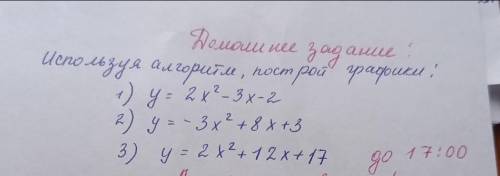 Домашнее задание!
Используя алгоритм, построй графики!
1) y = 2x² - 3x - 2
2) y = - 3x² + 8x + 3
3) y = 2x² + 12x + 17 до 17:00